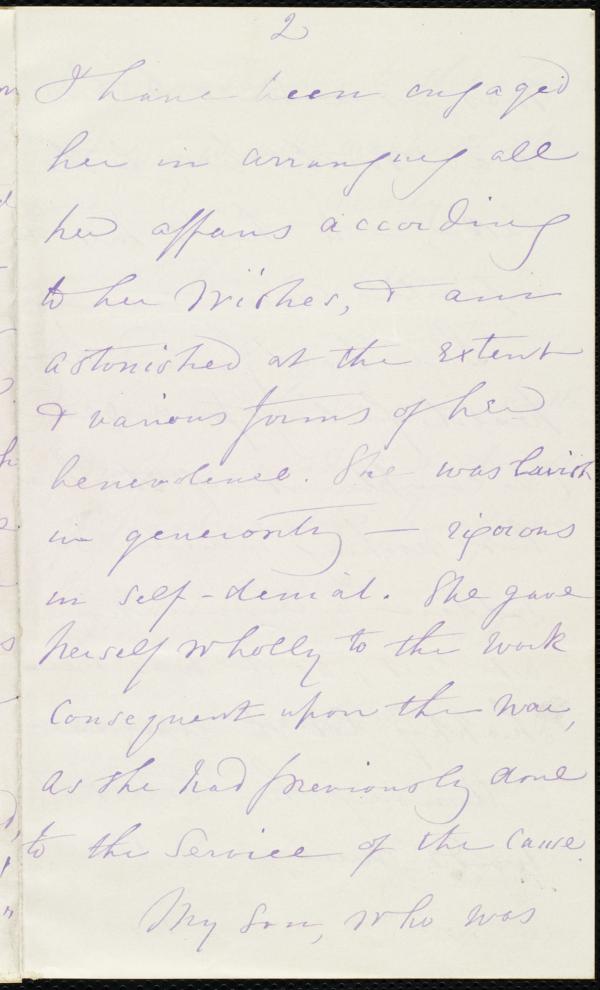 2
I have been engaged
her in arranging all
her affairs according
to her wishes, & am
astonished at the extent
& various forms of her
benevolence. She was lavish
in generosity — rigorous
in self-denial. She gave
herself wholly to the work
consequent upon the war,
as she had previously done
to the service of the cause
My son, who was